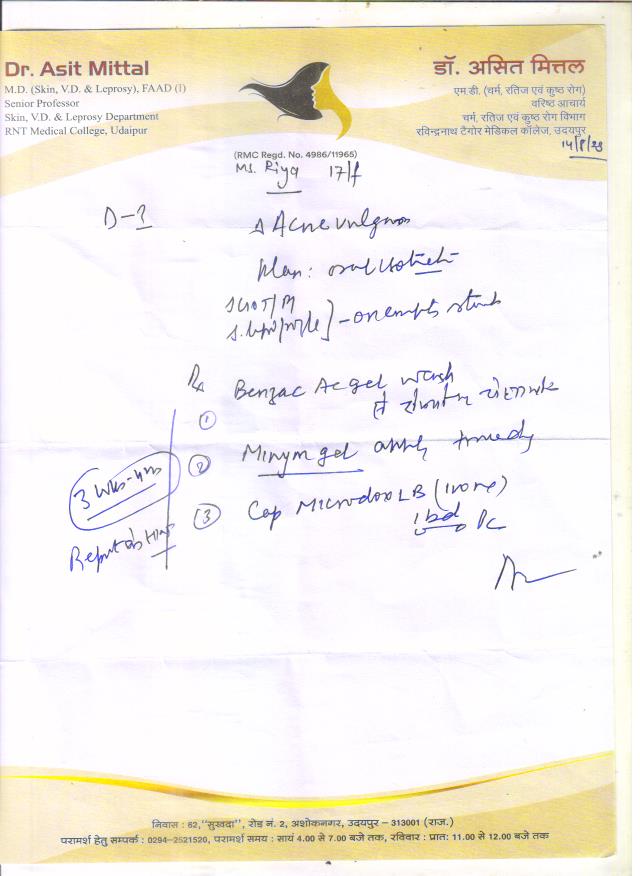 Dr. Asit Mittal
M.D. (Skin, V.D. & Leprosy), FAAD (I)
Senior Professor
Skin, V.D. & Leprosy Department
RNT Medical College, Udaipur
डॉ. असित मित्तल
एम.डी. (चर्म, रतिज एवं कुष्ठ रोग)
वरिष्ठ आचार्य
चर्म, रतिज एवं कुष्ठ रोग विभाग
रविन्द्रनाथ टैगोर मेडिकल कॉलेज, उदयपुर
(RMC Regd. No. 4986/11965)
Ms. Riya 17/f
Acne vulgaris
Plan: oral
on empty
Rx Benzac Ac gel wash
से
①
② Minym gel apply
3 wks
③ Cap Microdox LB (
1 bd PC
निवास : 62,"सुखदा", रोड नं. 2, अशोकनगर, उदयपुर – 313001 (राज.)
परामर्श हेतु सम्पर्क : 0294-2521520, परामर्श समय : सायं 4.00 से 7.00 बजे तक, रविवार : प्रात: 11.00 से 12.00 बजे तक